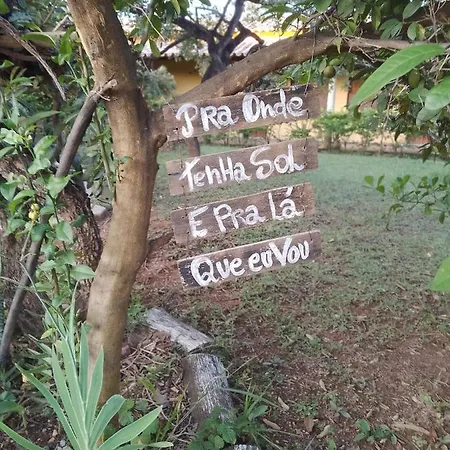 Pra Onde
Tenha Sol
E Pra Lá
Que eu Vou